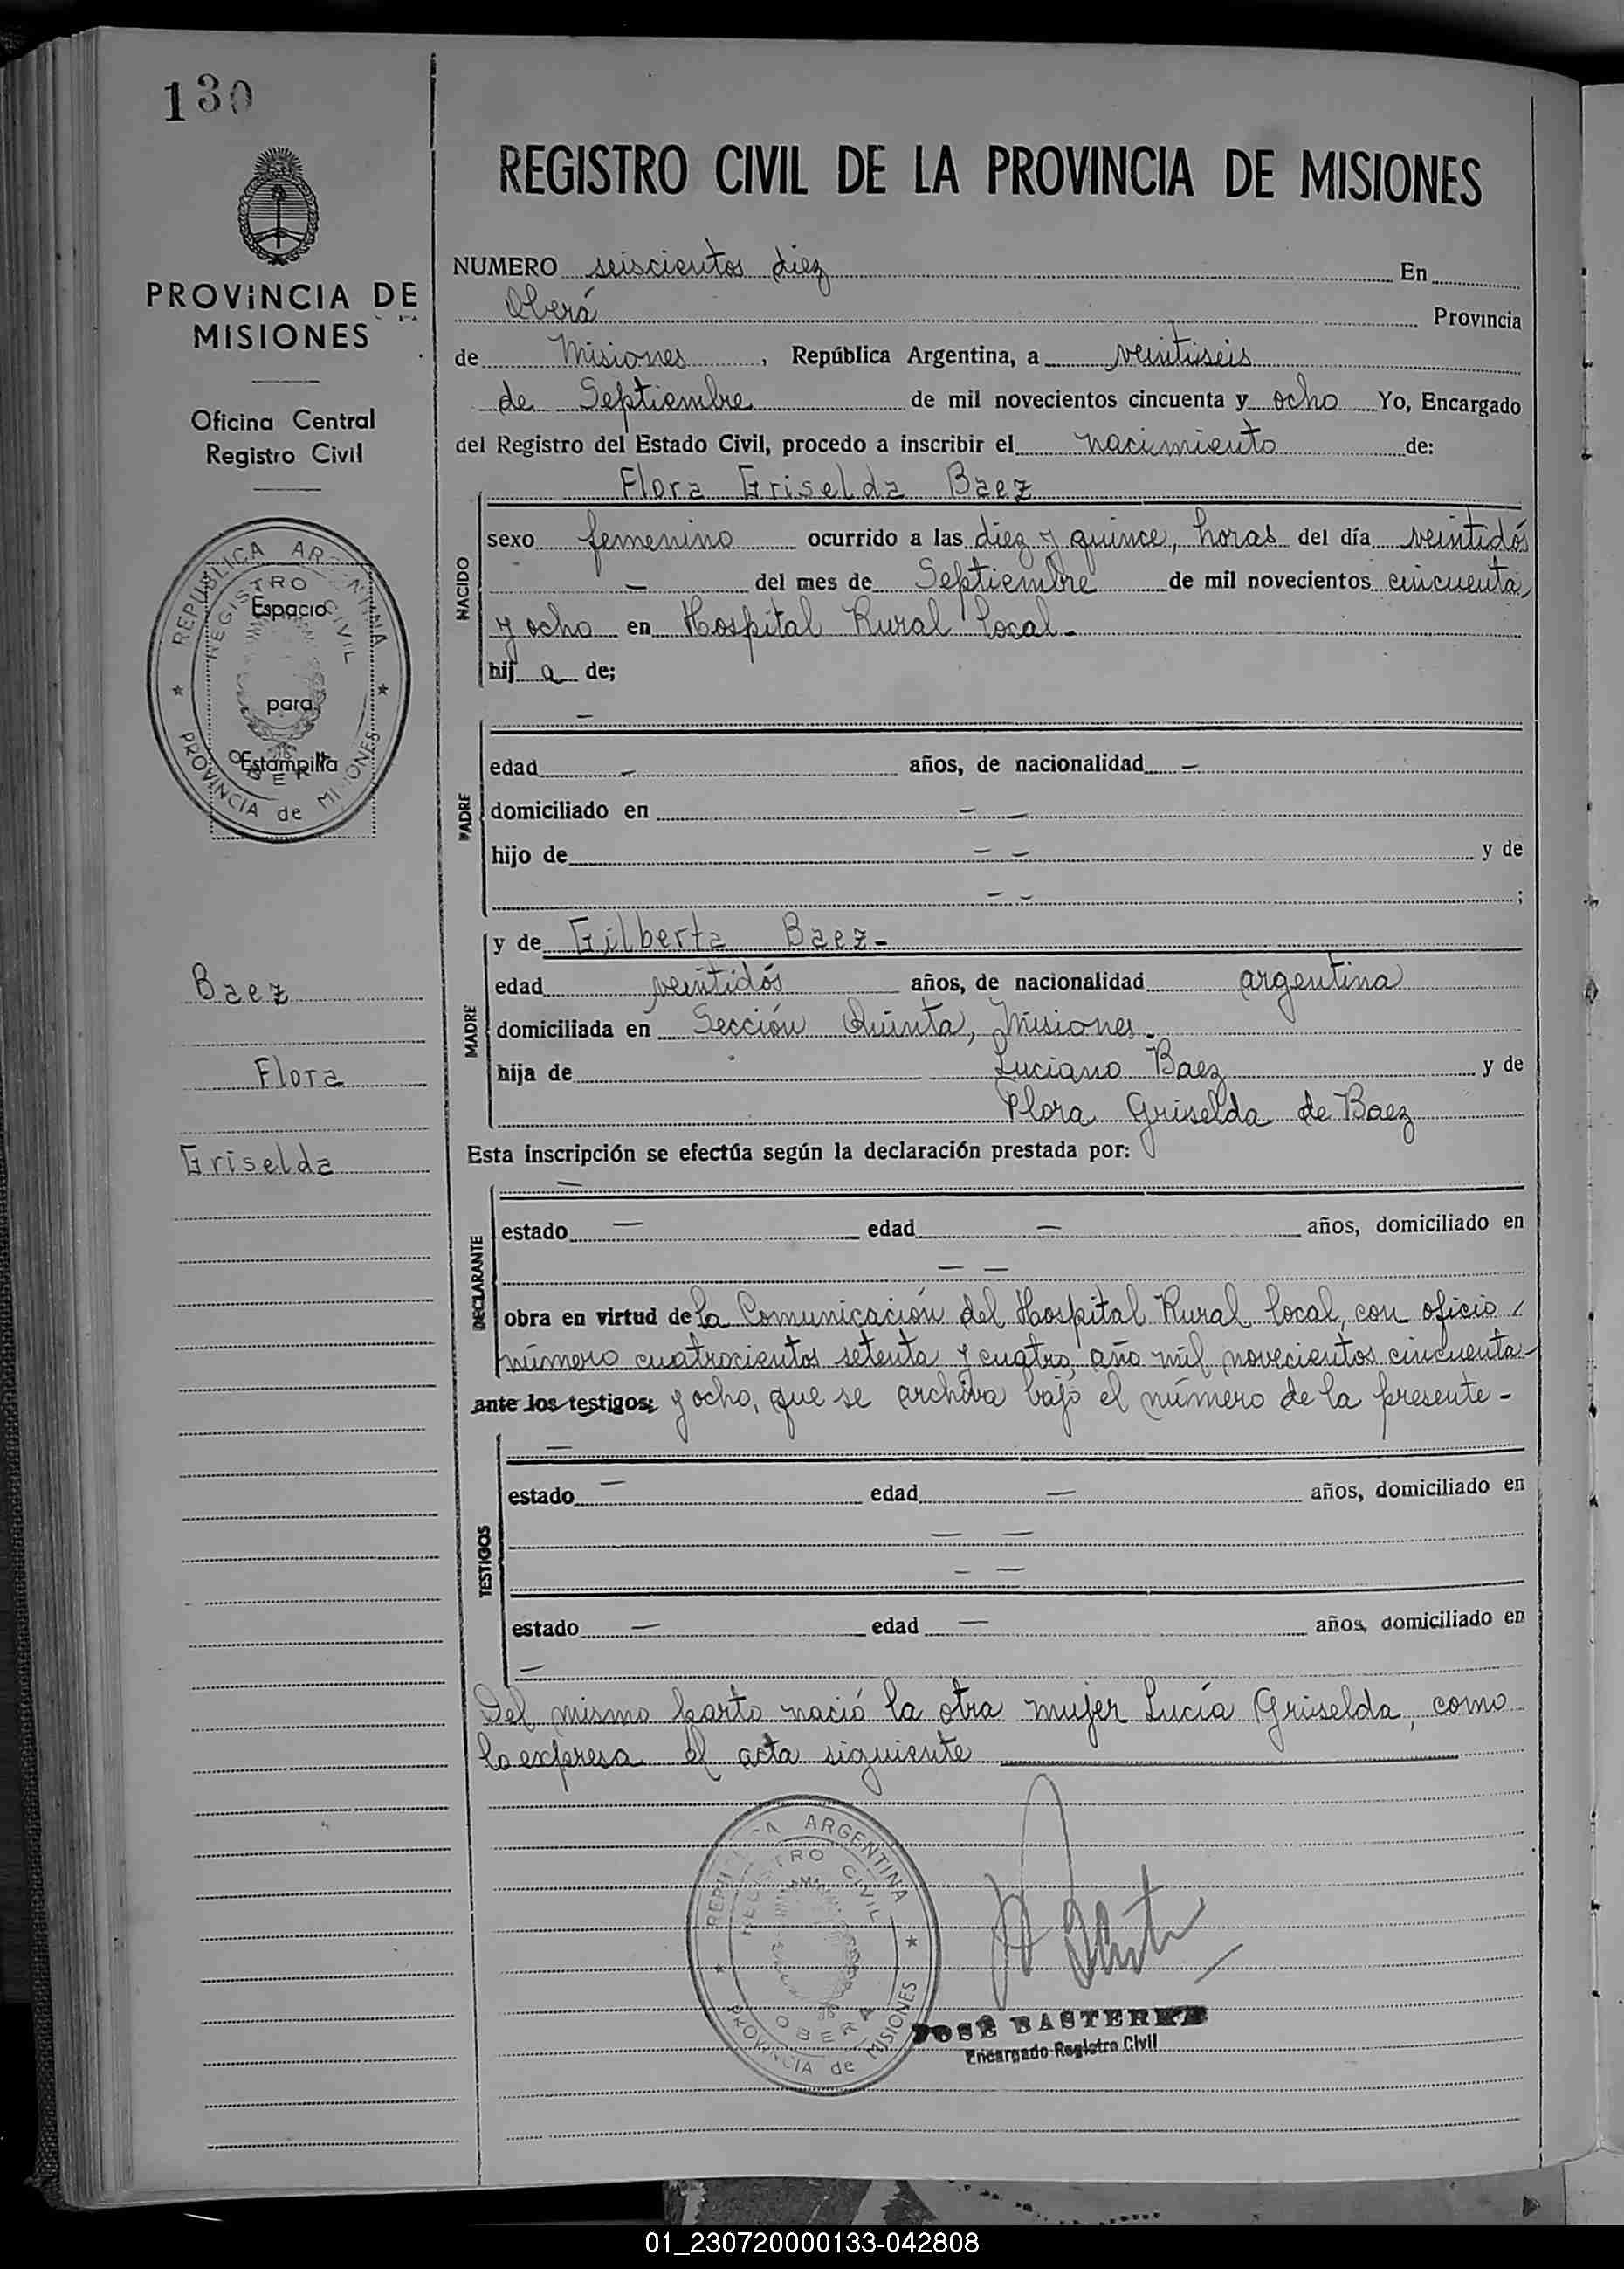 130
PROVINCIA DE
MISIONES
Oficina Central
Registro Civil
REPUBLICA ARGENTINA
REGISTRO CIVIL
Espacio
para
Estampilla
OBERA
PROVINCIA de MISIONES
Baez
Flora
Griselda
REGISTRO CIVIL DE LA PROVINCIA DE MISIONES
NUMERO seiscientos diez En
Oberá Provincia
de Misiones, República Argentina, a veintiseis
de Septiembre de mil novecientos cincuenta y ocho Yo, Encargado
del Registro del Estado Civil, procedo a inscribir el nacimiento de:
Flora Griselda Baez
NACIDO
sexo femenino ocurrido a las diez y quince, horas del día veintidós
— del mes de Septiembre de mil novecientos cincuenta
y ocho en Hospital Rural local.-
hij a de;
PADRE
—
edad — años, de nacionalidad —
domiciliado en — —
hijo de — — y de
— — ;
MADRE
y de Gilberta Baez-
edad veintidós años, de nacionalidad argentina
domiciliada en Sección Quinta, Misiones.
hija de Luciano Baez y de
Flora Griselda de Baez
Esta inscripción se efectúa según la declaración prestada por:
DECLARANTE
—
estado — edad — años, domiciliado en
— —
obra en virtud de la Comunicación del Hospital Rural local, con oficio
número cuatrocientos setenta y cuatro, año mil novecientos cincuenta
ante los testigos: y ocho, que se archiva bajo el número de la presente -
TESTIGOS
—
estado — edad — años, domiciliado en
— —
— —
estado — edad — años, domiciliado en
—
Del mismo parto nació la otra mujer Lucía Griselda, como
lo expresa el acta siguiente
REPUBLICA ARGENTINA
REGISTRO CIVIL
OBERA
PROVINCIA de MISIONES
JOSÉ BASTERRA
Encargado Registro Civil
01_230720000133-042808